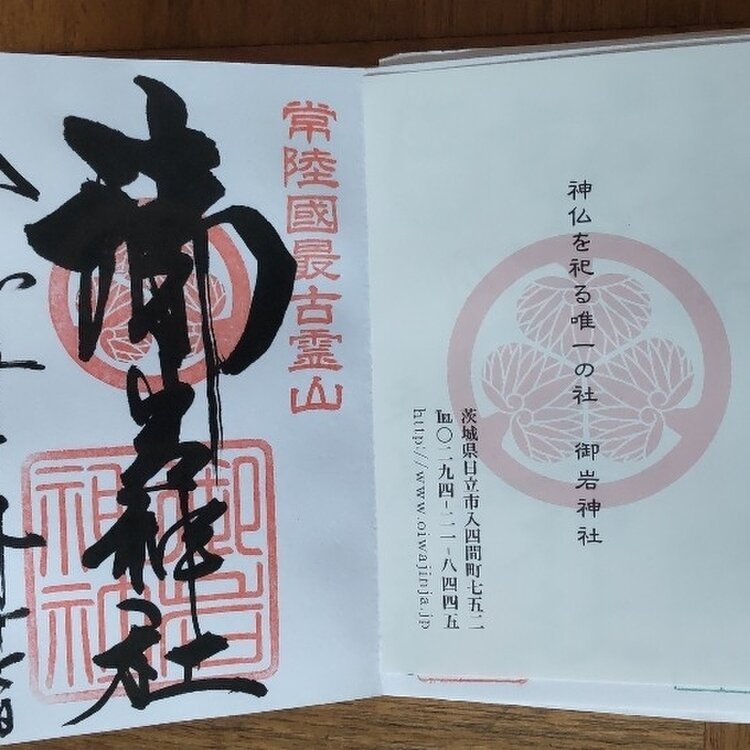 神仏を祀る唯一の社　御岩神社
茨城県日立市入四間町七五二
℡〇二九四-二一-八四四五
http://www.oiwajinja.jp
常陸國最古霊山
御岩神社
御岩神社